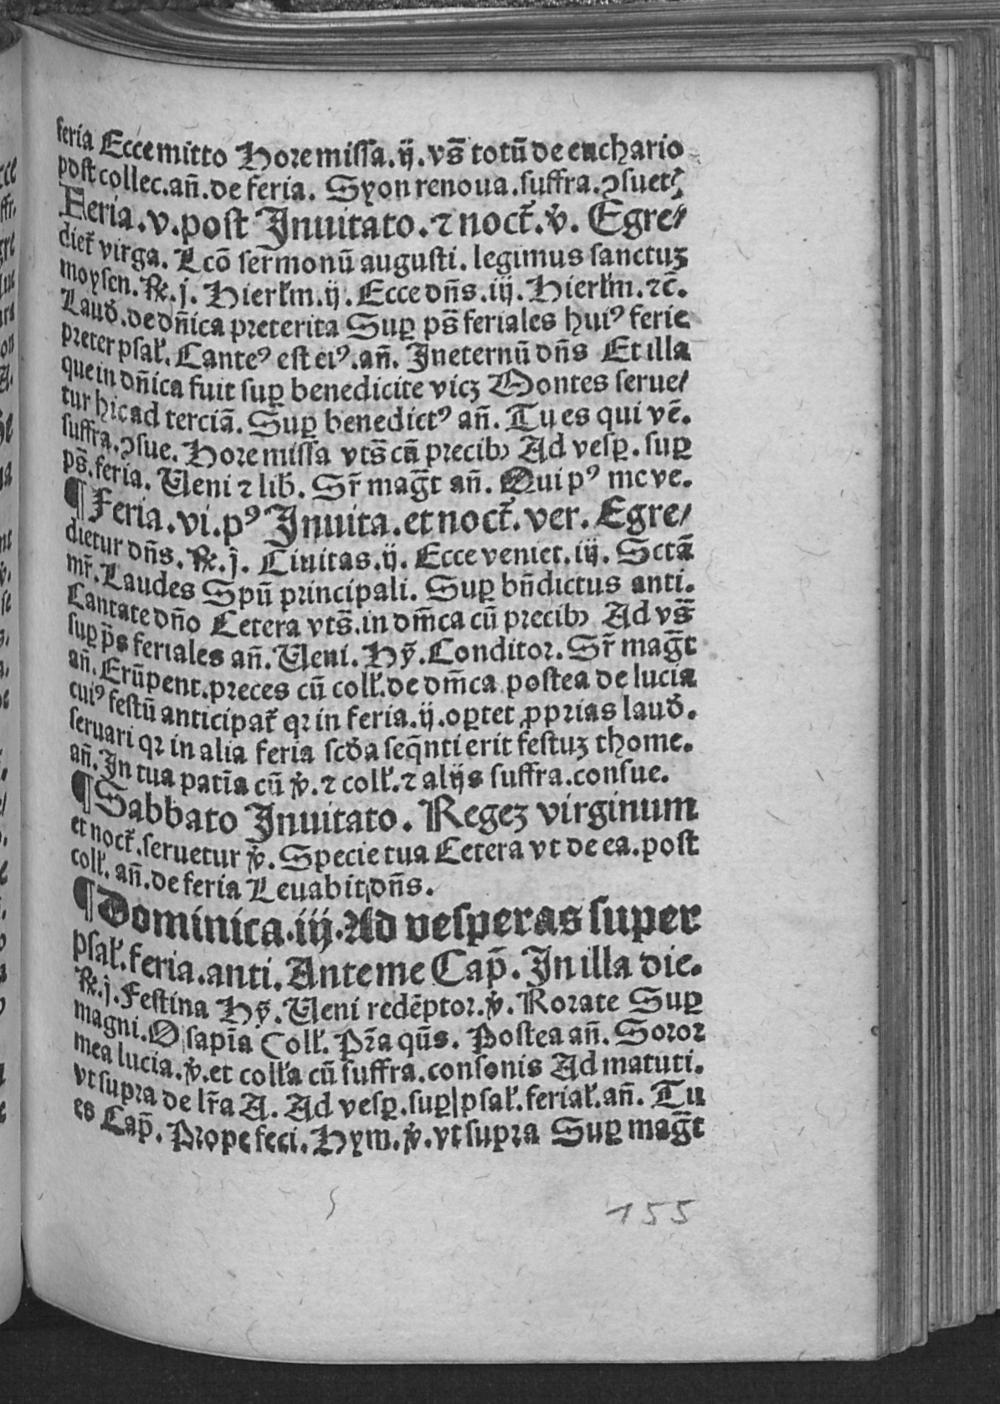 feria Ecce mitto Hore missa.ij.vs̄ totū de euchario
post collec.an̄.de feria. Syon renoua.suffra.ꝯsuet⸝
Feria.v.post Inuitato.⁊ noct̄.℣. Egre⸗
diet̄ virga. Lcō sermonū augusti. legimus sanctuꝫ
moysen.℟.j. Hierl̄m.ij. Ecce dn̄s.iij. Hierl̄m.⁊c̄.
Laud̄.de dn̄ica preterita Suꝑ ps̄ feriales huiꝰ ferie
preter psal̄. Canteꝰ est eiꝰ.an̄. Ineternū dn̄s Et illa
que in dn̄ica fuit suꝑ benedicite vicꝫ Montes serue⸗
tur hic ad terciā. Suꝑ benedictꝰ an̄. Tu es qui vē.
suffra.ꝯsue. Hore missa vts̄ cū precib⁹ Ad vesꝑ. suꝑ
ps̄.feria. Ueni ⁊ lib̄. Sr̄ mag̅t an̄. Qui pꝰ me ve.
¶ Feria.vi.pꝰ Inuita.et noct̄.ver. Egre⸗
dietur dn̄s.℟.j. Ciuitas.ij. Ecce veniet.iij. Sctā
mr̄. Laudes Spū principali. Suꝑ bn̄dictus anti.
Cantate dn̄o Cetera vts̄.in dm̄ca cū precib⁹ Ad vs̄
suꝑ ps̄ feriales an̄. Ueni. Hȳ. Conditor. Sr̄ mag̅t
an̄. Erūpent.preces cū coll̄.de dm̄ca postea de lucia
cuiꝰ festū anticipat̄ qꝛ in feria.ij.oꝑtet ꝓprias laud̄.
seruari qꝛ in alia feria scd̄a seq̄nti erit festuꝫ thome.
an̄. In tua patīa cū ℣.⁊ coll̄.⁊ alijs suffra.consue.
¶ Sabbato Inuitato. Regeꝫ virginum
et noct̄.seruetur ℣. Specie tua Cetera vt de ea.post
coll̄. an̄.de feria Leuabit dn̄s.
¶ Dominica.iij.Ad vesperas super
psal̄.feria.anti. Ante me Cap̄. In illa die.
℟.j. Festina Hȳ. Ueni redēptor.℣. Rorate Suꝑ
magni. O sapīa Coll̄. Pr̄a qūs. Postea an̄. Soror
mea lucia.℣.et coll̄a cū suffra.consonis Ad matuti.
vt supra de lr̄a A. Ad vesꝑ.suꝑ psal̄.ferial̄.an̄. Tu
es Cap̄. Prope feci. Hym.℣.vt supra Suꝑ mag̅t
155